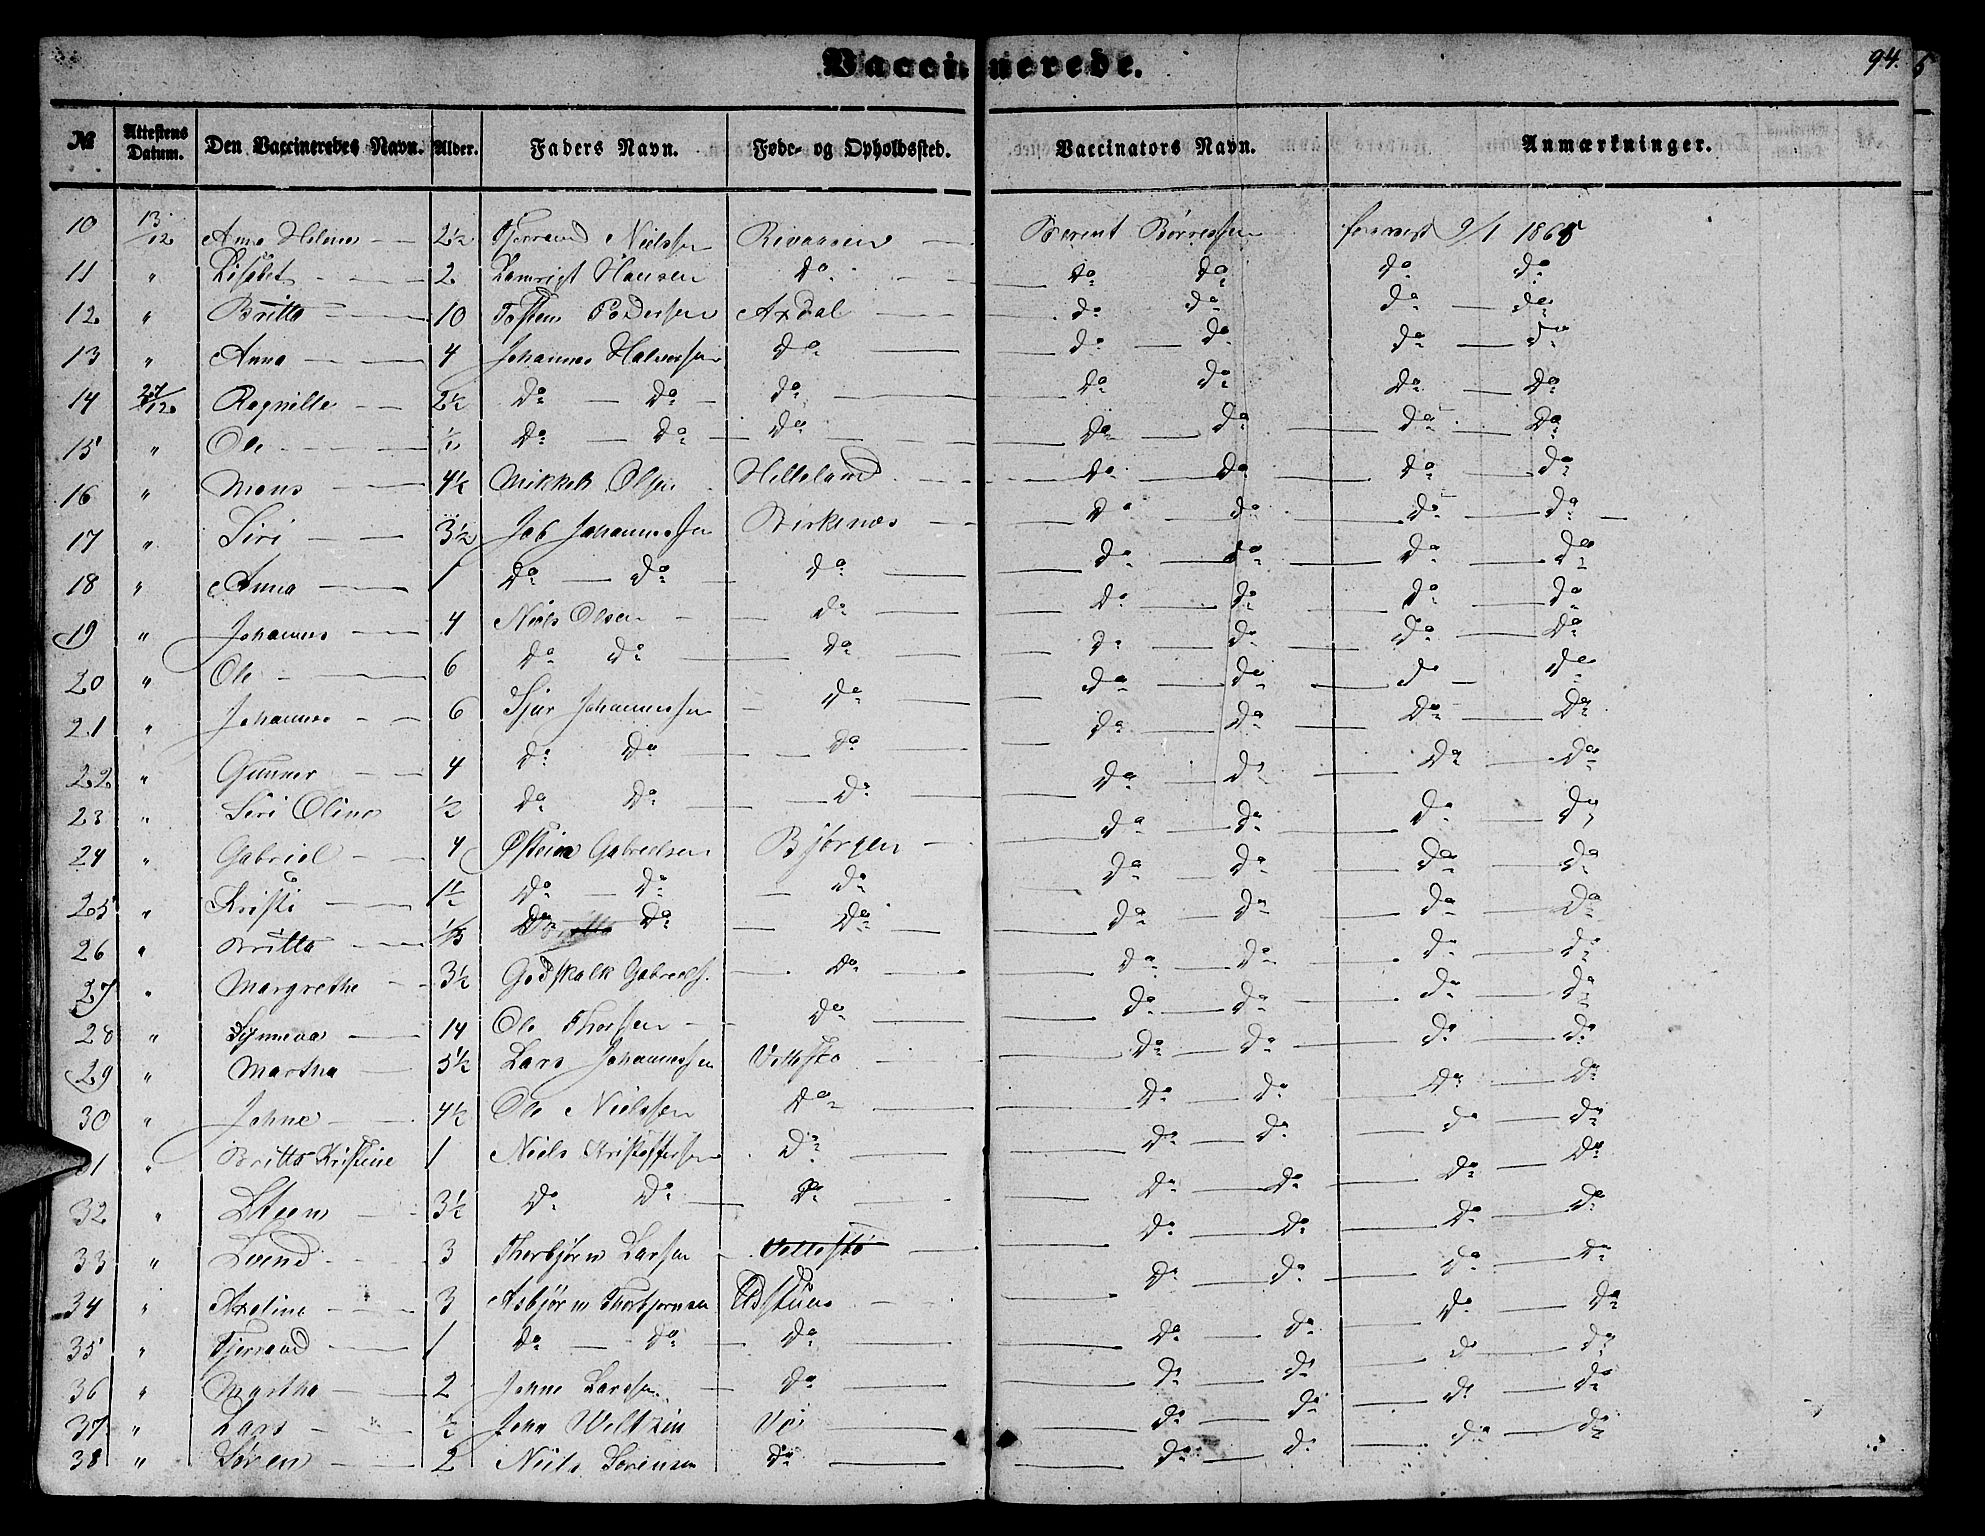 Vaccinerede. 94.
№ Attestens Datum. Den Vaccineredes Navn. Alder. Faders Navn. Føde- og Opholdssted. Vaccinators Navn. Anmærkninger.
10 13/12 Anna Helene — 2½ Tjerand Nielssen — Berent Børressen 9/1 1865
11 " Lisebet — 2 Hansen Do Do Do Do Do
12 " Britta — 10 Tosten Pedersen Ardal — Do Do Do Do
13 " Anna — 4 Johannes Halvorsen Do — Do Do Do Do
14 27/12 Ragnilla — 2½ Do — Do — Do — Do Do Do Do
15 " Ole — ½ Do — Do — Do — Do Do Do Do
16 " Mons — 4½ Mikkel Olsen Helleland — Do Do Do Do
17 " Siri — 3½ Jab Johannessen Birkenæs — Do Do Do Do
18 " Anna — 1 Do — Do — Do — Do Do Do Do
19 " Johannes — 4 Niels Olsen — Do — Do Do Do Do
20 " Ole — 6 Do Do — Do — Do Do Do Do
21 " Johannes — 6 Sjur Johannessen — Do — Do Do Do Do
22 " Gunner — 4 Do Do — Do — Do Do Do Do
23 " Siri Oline ½ Do Do — Do — Do Do Do Do
24 " Gabriel — 4 Østein Gabrielsen Bjørgen — Do Do Do Do
25 " Kristi — 1½ Do — Do — Do — Do Do Do Do
26 " Britta — Do Do — Do — Do Do Do Do
27 " Margrethe — 3½ Godskalk Gabriels. — Do — Do Do Do Do
28 " Synneva — 14 Ole Thorsen — Do — Do Do Do Do
29 " Martha — 5½ Lars Johannessen Do Do Do Do
30 " Johne — 4½ Ole Nielssen Do — Do Do Do Do
31 " Britta Kristine 1 Niels Kristoffersen Do — Do Do Do Do
32 " Steen — 3½ Do Do — Do — Do Do Do Do
33 " Svend — 3 Thorbjørn Larsen — Do Do Do Do
34 " Axeline — 3 Asbjørn Thorbjørnsen — Do Do Do Do
35 " Tjerand — 1 Do — Do — Do — Do Do Do Do
36 " Martha — 2 Johne Larssen — Do — Do Do Do Do
37 " Lars — ½ John Weltzin — Do Do Do Do
38 " Søren — 2 Niels Sørensen Do — Do Do Do Do